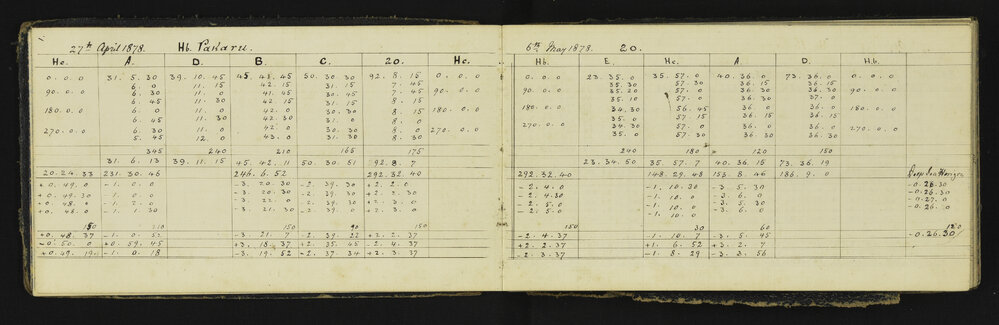 27th April 1878. Hb. Pakaru.
He. A. D. B. C. 20. He.
0. 0. 0 31. 5. 30 39. 10. 45 45. 48. 45 50. 30. 30 92. 8. 15 0. 0. 0
6. 0 11. 15 42. 15 31. 15 7. 45
90. 0. 0 6. 30 11. 0 41. 45 30. 45 7. 45 90. 0. 0
6. 45 11. 30 42. 15 31. 15 8. 15
180. 0. 0 6. 0 11. 0 42. 0 30. 30 8. 0 180. 0. 0
6. 45 11. 30 42. 30 31. 15 8. 15
270. 0. 0 6. 30 11. 0 42. 0 30. 30 8. 0 270. 0. 0
5. 45 12. 0 43. 0 31. 30 8. 30
345 240 210 165 175
31. 6. 13 39. 11. 15 45. 42. 11 50. 30. 51 92. 8. 7
20. 24. 33 231. 30. 46 246. 6. 52 292. 32. 40
+0. 49. 0 -1. 0. 0 -3. 20. 30 -2. 39. 30 +2. 2. 0
+0. 49. 30 -1. 0. 0 -3. 20. 30 -2. 39. 30 +2. 2. 30
+0. 48. 0 -1. 2. 0 -3. 22. 0 -2. 39. 0 +2. 3. 0
+0. 48. 0 -1. 1. 30 -3. 21. 30 -2. 39. 0 +2. 3. 0
150 210 150 90 150
+0. 48. 37 -1. 0. 52 -3. 21. 7 -2. 39. 22 +2. 2. 37
-0. 50. 0 +0. 59. 45 +3. 18. 37 +2. 35. 45 -2. 4. 37
+0. 49. 19 -1. 0. 18 -3. 19. 52 -2. 37. 34 +2. 3. 37
6th May 1878. 20.
Hb. E. He. A. D. Hb.
0. 0. 0 23. 35. 0 35. 57. 0 40. 36. 0 73. 36. 0 0. 0. 0
35. 30 57. 30 36. 15 36. 15
90. 0. 0 35. 20 57. 0 36. 0 36. 30 90. 0. 0
35. 10 57. 30 36. 30 36. 30
180. 0. 0 34. 30 56. 45 36. 0 36. 15 180. 0. 0
35. 0 57. 15 36. 15 36. 30
270. 0. 0 34. 30 57. 0 36. 30 36. 0 270. 0. 0
35. 0 57. 0 36. 30 36. 30
240 180 120 150
23. 34. 50 35. 57. 7 40. 36. 15 73. 36. 19
292. 32. 40 148. 29. 48 153. 8. 46 186. 9. 0 Sea Horizon
-2. 4. 0 -1. 10. 30 -3. 5. 30 -0. 26. 30
-2. 4. 0 -1. 10. 0 -3. 6. 0 -0. 26. 30
-2. 5. 0 -1. 10. 0 -3. 5. 30 -0. 27. 0
-2. 5. 0 -1. 10. 0 -3. 6. 0 -0. 26. 0
150 30 60 120
-2. 4. 37 -1. 10. 7 -3. 5. 45 -0. 26. 30
+2. 2. 37 +1. 6. 52 +3. 2. 7
-2. 3. 37 -1. 8. 29 -3. 3. 56